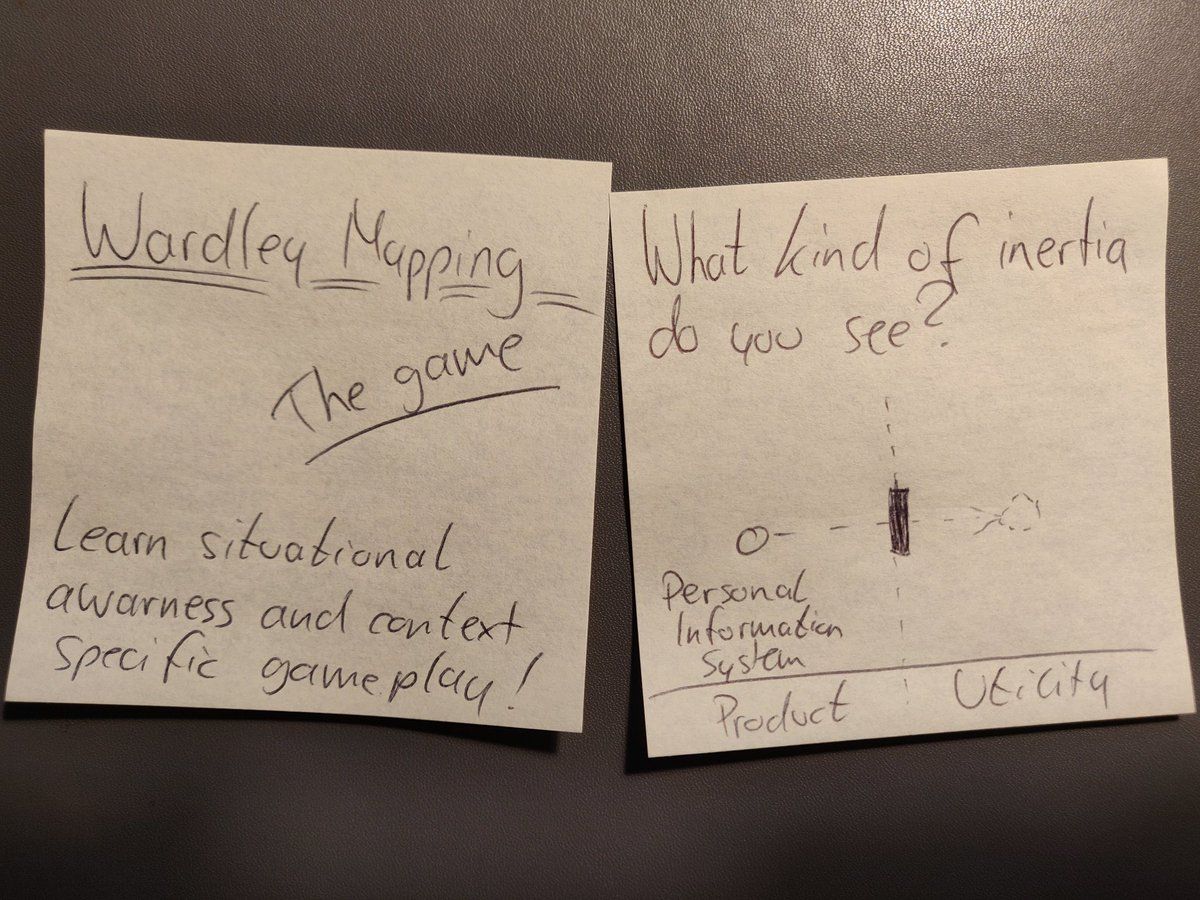 Wardley Mapping
The game
Learn situational
awarness and context
specific gameplay!
What kind of inertia
do you see?
Personal
Information
System
Product
Utility